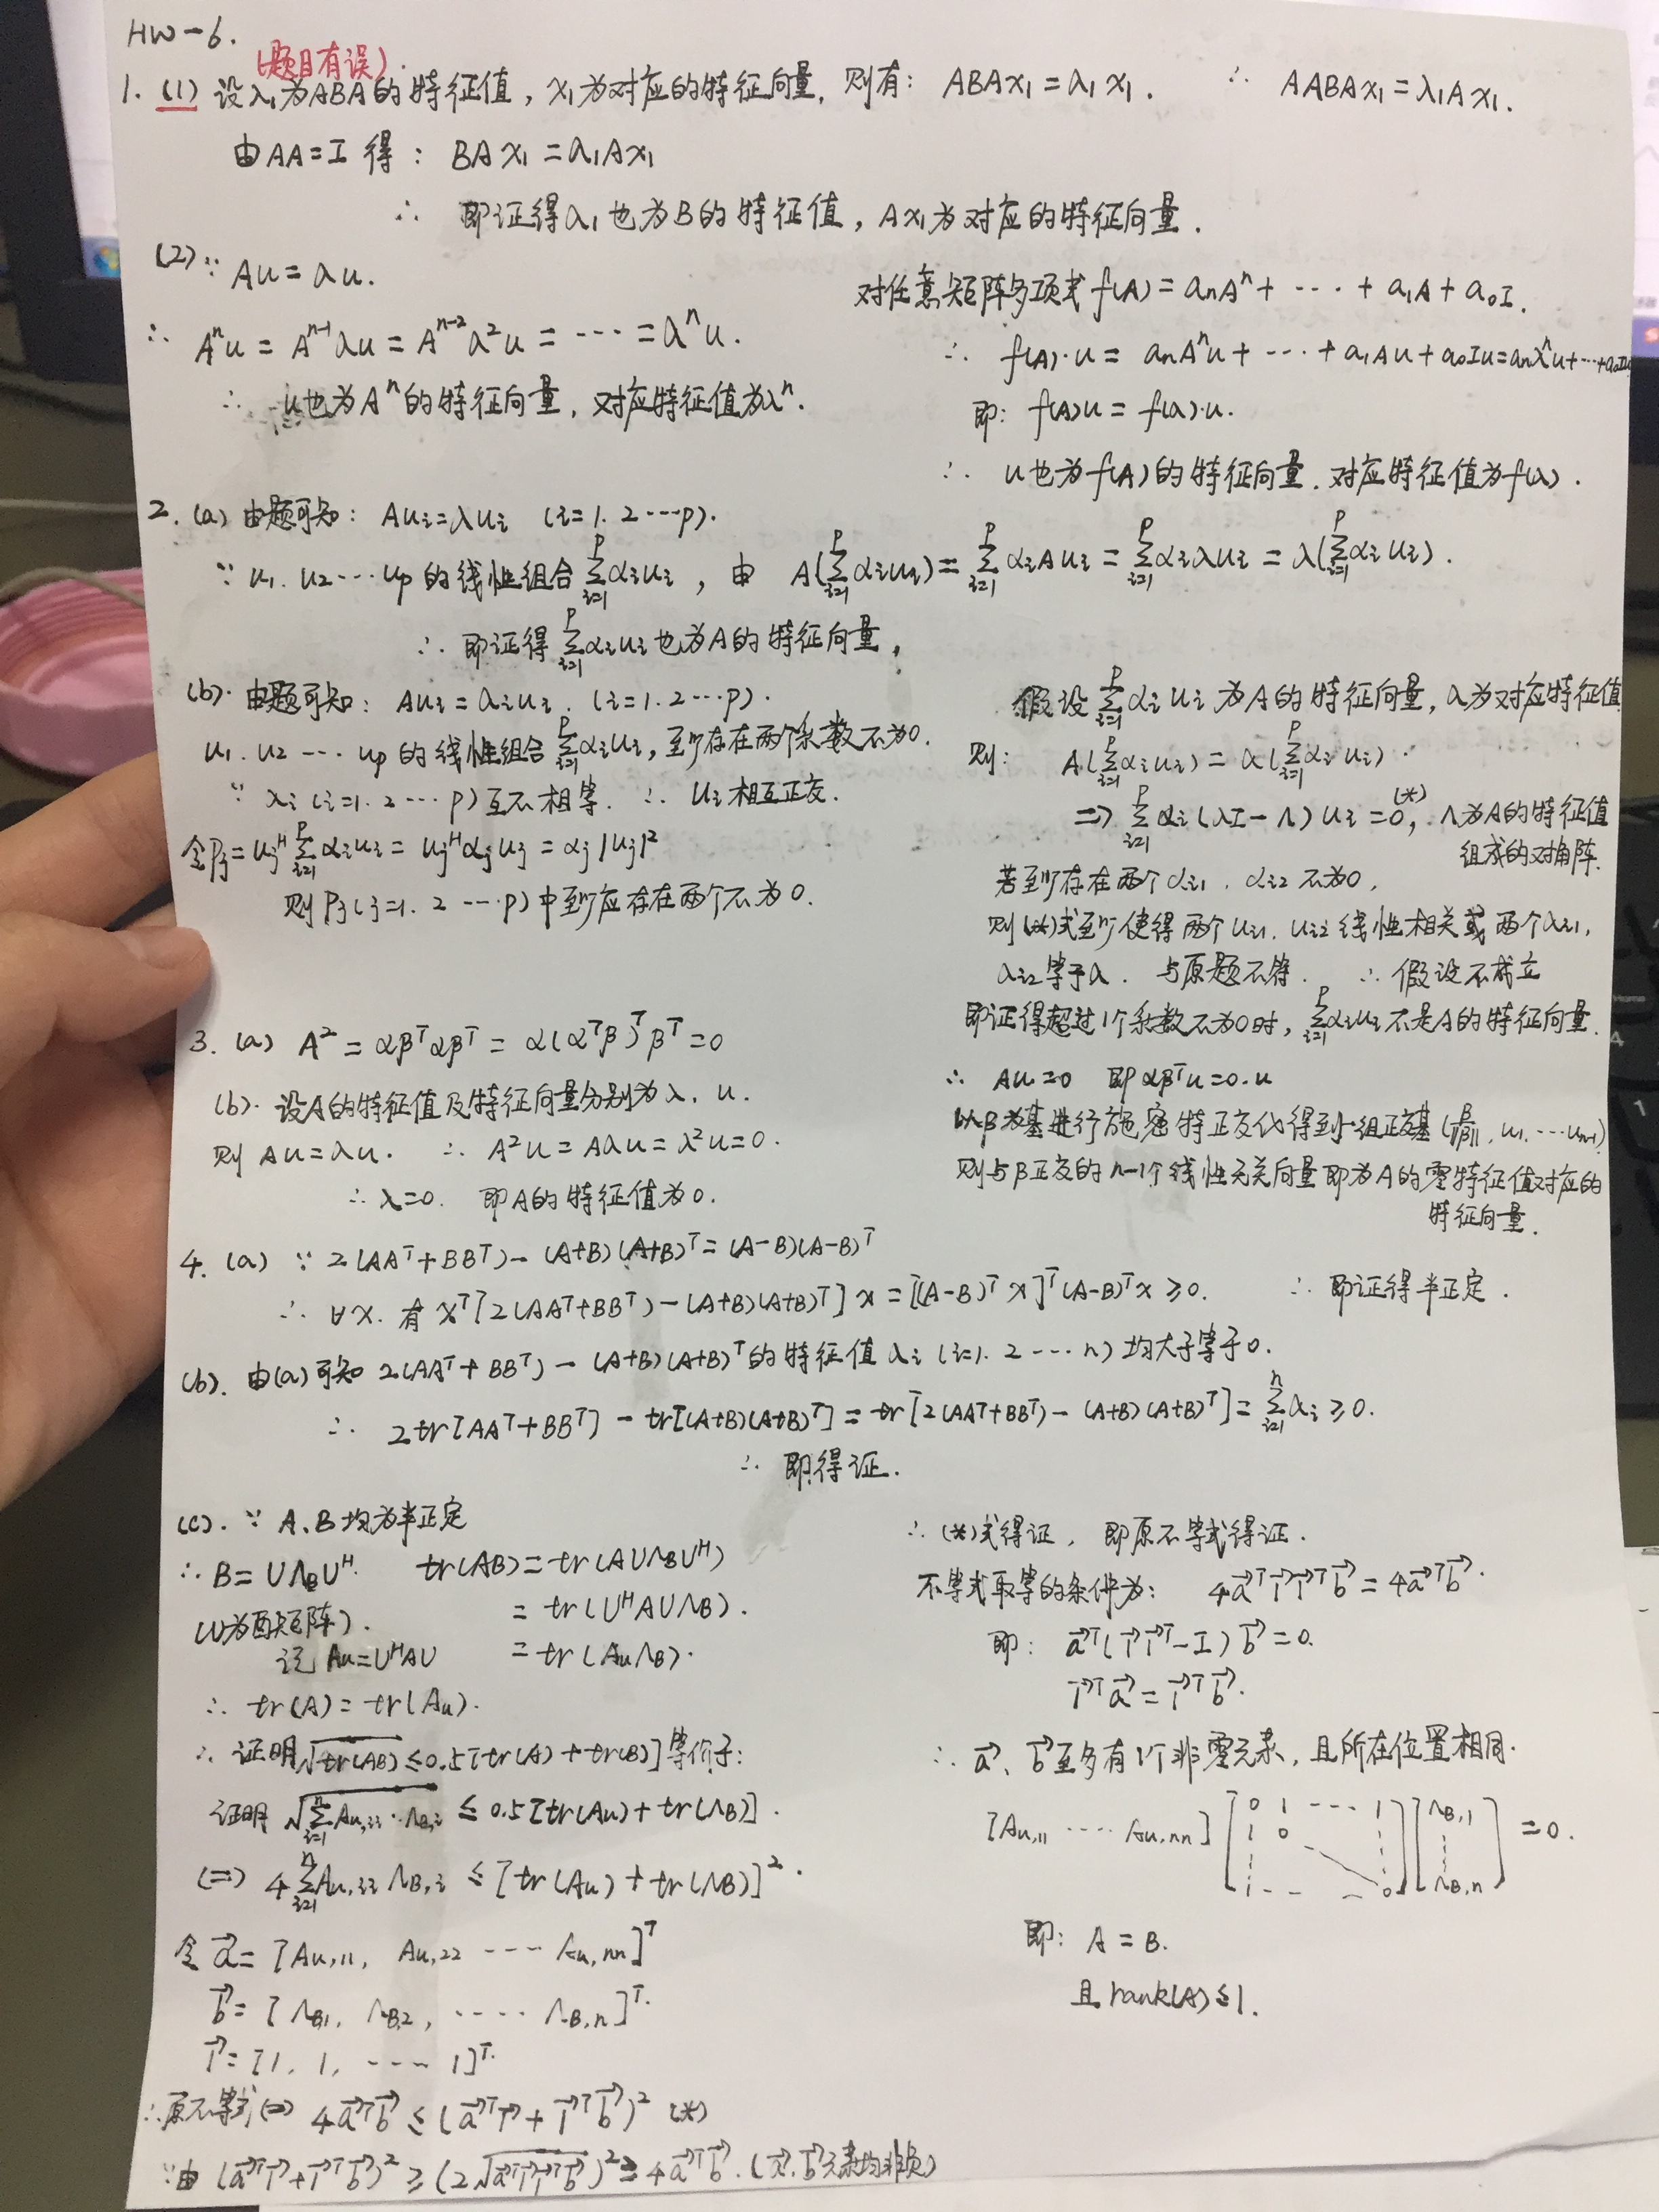 HW-6.
(题目有误)
1. (1) 设λ₁为ABA的特征值，x₁为对应的特征向量，则有： ABAx₁=λ₁x₁. ∴ AABAx₁=λ₁Ax₁.
由AA=I 得： BAx₁=λ₁Ax₁
∴ 即证得λ₁也为B的特征值，Ax₁为对应的特征向量.
(2) ∵ Au=λu.
∴ Aⁿu = Aⁿ⁻¹λu = Aⁿ⁻²λ²u = ··· = λⁿu.
∴ u也为Aⁿ的特征向量，对应特征值为λⁿ.
对任意矩阵多项式 f(A) = aₙAⁿ + ··· + a₁A + a₀I.
∴ f(A)·u = aₙAⁿu + ··· + a₁Au + a₀Iu = aₙλⁿu + ··· + a₀Iu
即: f(A)u = f(λ)·u.
∴ u也为f(A)的特征向量. 对应特征值为f(λ).
2. (a) 由题可知: Auᵢ=λuᵢ (i=1. 2 ··· p).
∵ u₁. u₂ ··· uₚ 的线性组合 Σᵢ₌₁ᵖ αᵢuᵢ ，由 A(Σᵢ₌₁ᵖ αᵢuᵢ) = Σᵢ₌₁ᵖ αᵢAuᵢ = Σᵢ₌₁ᵖ αᵢλuᵢ = λ(Σᵢ₌₁ᵖ αᵢuᵢ).
∴ 即证得 Σᵢ₌₁ᵖ αᵢuᵢ 也为A的特征向量.
(b). 由题可知: Auᵢ = λᵢuᵢ. (i=1. 2 ··· p).
u₁. u₂ ··· uₚ 的线性组合 Σᵢ₌₁ᵖ αᵢuᵢ, 至少存在两个系数不为0.
∵ λᵢ (i=1. 2 ··· p) 互不相等. ∴ uᵢ相互正交.
令pⱼ = uⱼᴴ Σᵢ₌₁ᵖ αᵢuᵢ = uⱼᴴαⱼuⱼ = αⱼ|uⱼ|²
则Pⱼ(j=1. 2 ··· p) 中至少应存在两个不为0.
假设 Σᵢ₌₁ᵖ αᵢuᵢ 为A的特征向量，λ为对应特征值
则: A(Σᵢ₌₁ᵖ αᵢuᵢ) = λ(Σᵢ₌₁ᵖ αᵢuᵢ).
=> Σᵢ₌₁ᵖ αᵢ(λI-Λ)uᵢ = 0, (*) Λ为A的特征值
组成的对角阵.
若至少存在两个αᵢ₁. αᵢ₂ 不为0,
则(*)式至少使得两个uᵢ₁. uᵢ₂ 线性相关或两个λᵢ₁,
λᵢ₂等于λ. 与原题不符. ∴ 假设不成立
即证得超过1个系数不为0时, Σᵢ₌₁ᵖ αᵢuᵢ不是A的特征向量.
3. (a) A² = αβᵀαβᵀ = α(αᵀβ)ᵀβᵀ = 0
(b). 设A的特征值及特征向量分别为λ. u.
则 Au=λu. ∴ A²u = Aλu = λ²u = 0.
∴ λ=0. 即A的特征值为0.
∴ Au=0 即αβᵀu=0·u
以β为基进行施密特正交化得到一组正交基 (β/||β||, u₁, ··· uₙ₋₁)
则与β正交的n-1个线性无关向量即为A的零特征值对应的
特征向量.
4. (a) ∵ 2(AAᵀ+BBᵀ)-(A+B)(A+B)ᵀ=(A-B)(A-B)ᵀ
∴ ∀x. 有 xᵀ[2(AAᵀ+BBᵀ)-(A+B)(A+B)ᵀ]x = [(A-B)ᵀx]ᵀ(A-B)ᵀx ≥ 0. ∴ 即证得半正定.
(b). 由(a)可知 2(AAᵀ+BBᵀ)-(A+B)(A+B)ᵀ的特征值 λᵢ (i=1. 2 ··· n) 均大于等于0.
∴ 2tr[AAᵀ+BBᵀ] - tr[(A+B)(A+B)ᵀ] = tr[2(AAᵀ+BBᵀ)-(A+B)(A+B)ᵀ] = Σᵢ₌₁ⁿ λᵢ ≥ 0.
∴ 即得证.
(c). ∵ A、B均为半正定
∴ B = UΛ_BUᴴ. tr(AB) = tr(AUΛ_BUᴴ)
(U为酉矩阵). = tr(UᴴAUΛ_B).
记 Aᵤ=UᴴAU = tr(AᵤΛ_B).
∴ tr(A) = tr(Aᵤ).
∴ 证明√tr(AB) ≤ 0.5[tr(A)+tr(B)] 等价于:
证明 √(Σᵢ₌₁ⁿ Aᵤ,ᵢᵢ·Λ_B,ᵢ) ≤ 0.5[tr(Aᵤ)+tr(Λ_B)].
(=) 4Σᵢ₌₁ⁿ Aᵤ,ᵢᵢ Λ_B,ᵢ ≤ [tr(Aᵤ)+tr(Λ_B)]².
令 a⃗ = [Aᵤ,₁₁, Aᵤ,₂₂ ···· Aᵤ,ₙₙ]ᵀ
b⃗ = [Λ_B,1, Λ_B,2, ····· Λ_B,n]ᵀ.
1⃗ = [1, 1, ···· 1]ᵀ.
∴ 原不等式(=) 4a⃗ᵀb⃗ ≤ (a⃗ᵀ1⃗ + 1⃗ᵀb⃗)² (*)
∵由 (a⃗ᵀ1⃗+1⃗ᵀb⃗)² ≥ (2√(a⃗ᵀ1⃗1⃗ᵀb⃗))² ≥ 4a⃗ᵀb⃗. (a⃗. b⃗元素均非负)
∴ (*)式得证，即原不等式得证.
不等式取等的条件为: 4a⃗ᵀ1⃗1⃗ᵀb⃗ = 4a⃗ᵀb⃗.
即: a⃗ᵀ(1⃗1⃗ᵀ-I)b⃗ = 0.
1⃗ᵀa⃗ = 1⃗ᵀb⃗.
∴ a⃗、b⃗至多有1个非零元素, 且所在位置相同.
[Aᵤ,₁₁ ····· Aᵤ,ₙₙ] [0 1 ··· 1; 1 0; 1 ··· 0] [Λ_B,1 ⋮ Λ_B,n] = 0.
即: A = B.
且 rank(A) ≤ 1.